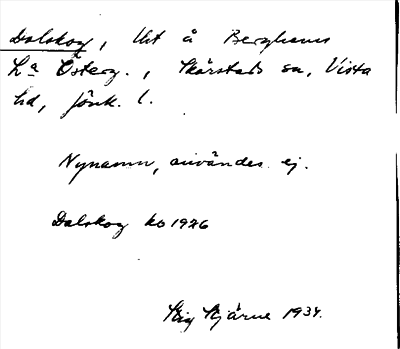 Dalskog, Ut å Berghems
La Österg., Skärstads sn, Vista
hd, Jönk. l.
Nynamn, användes ej.
Dalskog ko 1926
Stig Stjärne 1934.